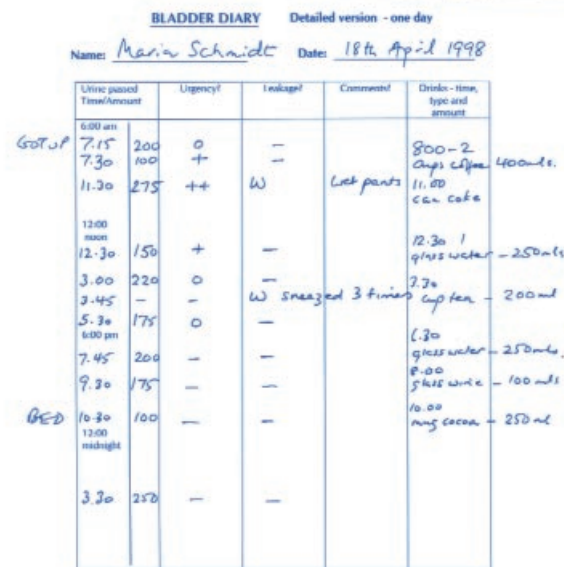 BLADDER DIARY Detailed version - one day
Name: Maria Schmidt Date: 18th April 1998
Urine passed Time/Amount Urgency? Leakage? Comments? Drinks - time, type and amount
6:00 am
GOT UP 7.15 200 0 - 800-2
7.30 100 + - cups coffee 400mls.
11.30 275 ++ W Wet pants 11.00
can coke
12:00
noon 12.30 1
12.30 150 + - glass water - 250mls
3.00 220 0 - 3.30
3.45 - - W sneezed 3 times cup tea - 200ml
5.30 175 0 -
6:00 pm 6.30
7.45 200 - - glass water - 250mls.
8.00
9.30 175 - - glass wine - 100mls
10.00
BED 10.30 100 - - mug cocoa - 250ml
12:00
midnight
3.30 250 - -